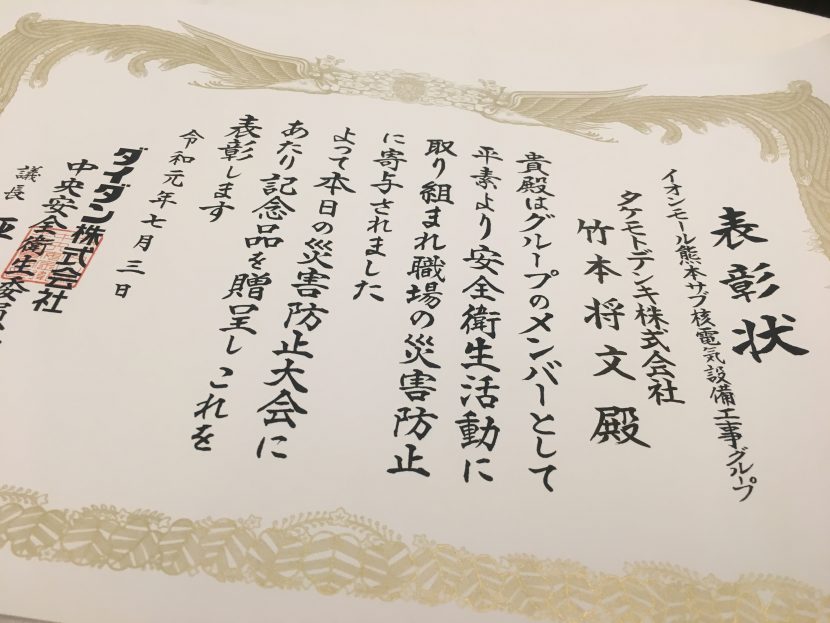 表彰状
イオンモール熊本サブ核電気設備工事グループ
タケモトデンキ株式会社
竹本将文殿
貴殿はグループのメンバーとして
平素より安全衛生活動に
取り組まれ職場の災害防止
に寄与されました
よって本日の災害防止大会に
あたり記念品を贈呈しこれを
表彰します
令和元年七月三日
ダイダン株式会社
中央安全衛生委員
議長